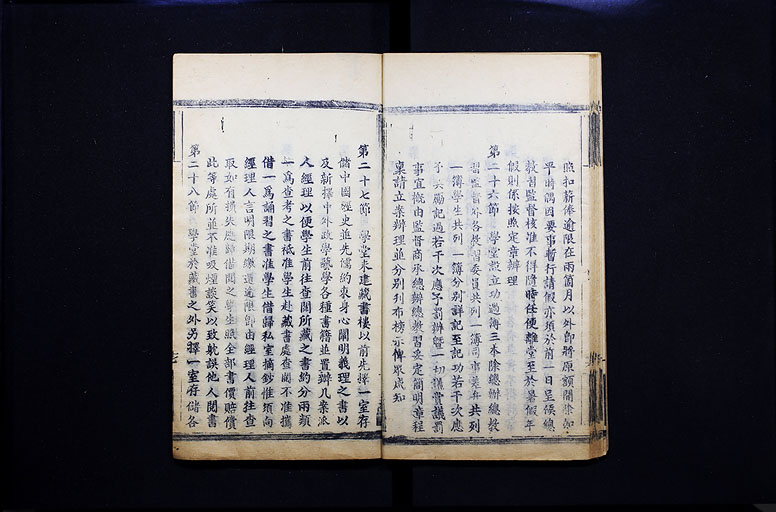 照扣薪俸逾限在兩箇月以外即將原額開除如
平時遇因要事暫行請假亦須於前一日呈候總
教習監督核准不得隨時任便離堂至於暑假年
假則係按照定章辦理
第二十六節　學堂設立功過簿三本除總辦總教
習監督外各教習委員共列一簿司事差弁共列
一簿學生共列一簿分別詳記至記功若干次應
予奬勵記過若干次應予罰辦曁一切議賞議罰
事宜概由監督商承總辦總教習妥定簡明章程
稟請立案辦理並分別刊布榜示俾眾咸知
第二十七節　學堂未建藏書樓以前先擇一室存
儲中國經史並先儒約束身心闡明義理之書以
及新擇中外政學藝學各種書籍並置辦几案派
人經理以便學生前往查閱所藏之書約分兩類
一為查考之書祗准學生赴藏書處查閱不准攜
借一爲誦習之書准學生借歸私室摘鈔惟須向
經理人言明限期繳還逾限即由經理人前往查
取如有損失應歸借閱之學生照全部書價賠償
此等處所並不准吸煙談笑以致躭誤他人閱書
第二十八節　學堂於藏書之外另擇一室存儲各